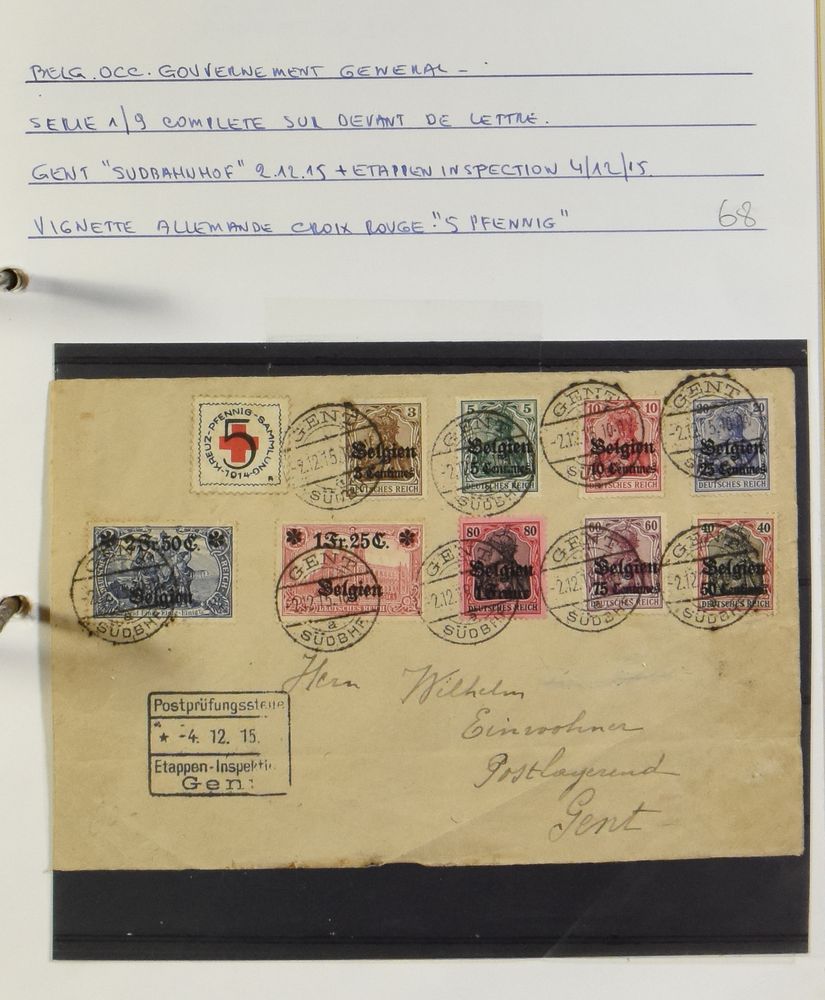 BELG. OCC. GOUVERNEMENT GENERAL -
SERIE 1/9 COMPLETE SUR DEVANT DE LETTRE.
GENT "SUDBAHNHOF" 2.12.15 + ETAPPEN INSPECTION 4/12/15.
VIGNETTE ALLEMANDE CROIX ROUGE: "5 PFENNIG"
68
KREUZ-PFENNIG-SAMMLUNG
5
1914
GENT
-2.12.15
SÜDBHF
3
Belgien
3 Centimes
DEUTSCHES REICH
5 5
Belgien
5 Centimes
DEUTSCHES REICH
GENT
10 10
Belgien
10 Centimes
DEUTSCHES REICH
GENT
20
Belgien
25 Centimes
DEUTSCHES REICH
2 Fr. 50 C.
Belgien
SÜDBHF
1 Fr. 25 C.
GENT
Belgien
DEUTSCHES REICH
a
SÜDBHF
80 80
Belgien
1 Franc
DEUTSCHES REICH
SÜDBHF
60 60
Belgien
75 Centimes
DEUTSCHES REICH
40 40
Belgien
50 Centimes
DEUTSCHES REICH
Herrn Wilhelm
Einwohner
Postlagerend
Gent
Postprüfungsstelle
* -4. 12. 15.
Etappen-Inspektion
Gent